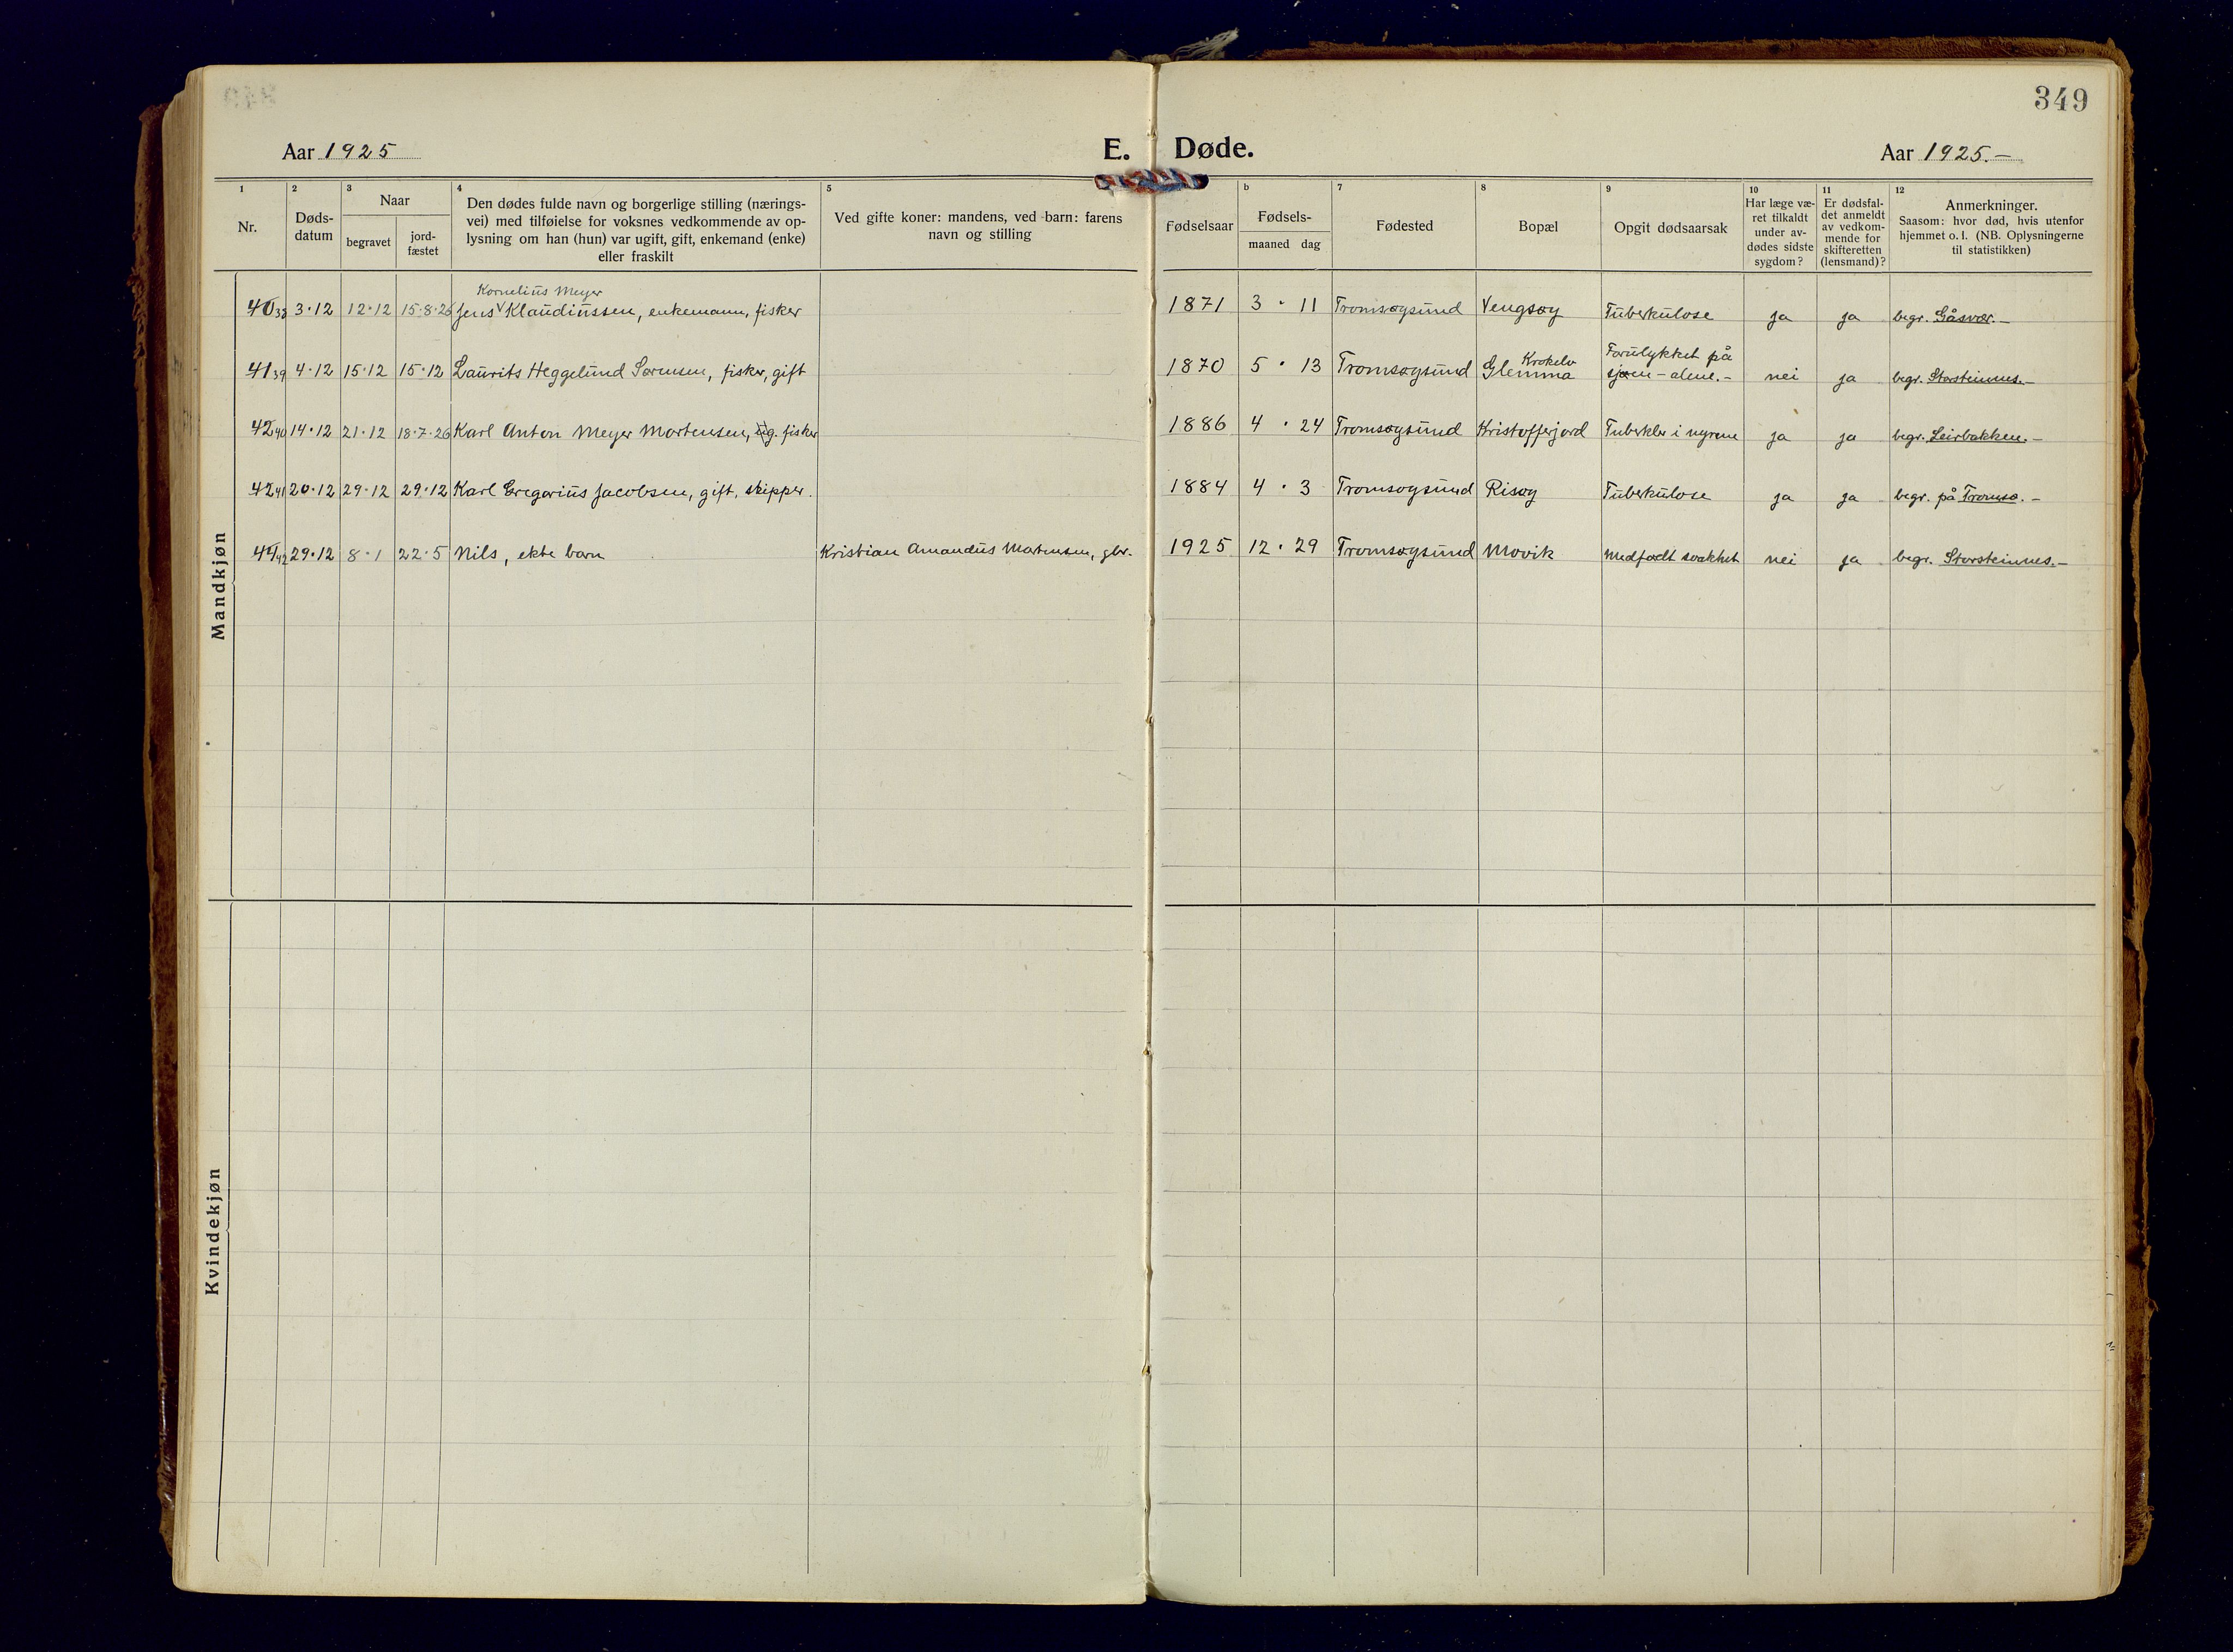 349
Aar 1925
E. Døde.
Aar 1925.-
1 2 3 4 5 b 7 8 9 10 11 12
Nr.
Døds-
datum
Naar
begravet
jord-
fæstet
Den dødes fulde navn og borgerlige stilling (nærings-
vei) med tilføielse for voksnes vedkommende av op-
lysning om han (hun) var ugift, gift, enkemand (enke)
eller fraskilt
Ved gifte koner: mandens, ved barn: farens
navn og stilling
Fødselsaar
Fødsels-
maaned dag
Fødested
Bopæl
Opgit dødsaarsak
Har læge væ-
ret tilkaldt
under av-
dødes sidste
sygdom?
Er dødsfal-
det anmeldt
av vedkom-
mende for
skifteretten
(lensmand)?
Anmerkninger.
Saasom: hvor død, hvis utenfor
hjemmet o. l. (NB. Oplysningerne
til statistikken)
Mandkjøn
Kornelius Meyer
40 3·12 12·12 15·8·26 Jens Klaudiussen, enkemann, fisker 1871 3 · 11 Tromsøysund Vengsøy Tuberkulose ja ja begr. Gåsvær.-
Krokelv Forulykket på
41 39 4·12 15·12 15·12 Laurits Heggelund Sørensen, fisker, gift 1870 5 · 13 Tromsøysund Glemma sjøen - alene.- nei ja begr. Storsteinnes.-
42 40 14·12 21·12 18·7·26 Karl Anton Meyer Mortensen, ug. fisker 1886 4 · 24 Tromsøysund Kristofferjord Tuberkler i nyrene ja ja begr. Leirbakken.-
42 41 20·12 29·12 29·12 Karl Gregorius Jacobsen, gift, skipper. 1884 4 · 3 Tromsøysund Risøy Tuberkulose ja ja begr. på Tromsø.-
44 42 29·12 8·1 22·5 Nils, ekte barn Kristian Amandus Mortensen, gbr. 1925 12 · 29 Tromsøysund Movik Medfødt svakhet nei ja begr. Storsteinnes.-
Kvindekjøn